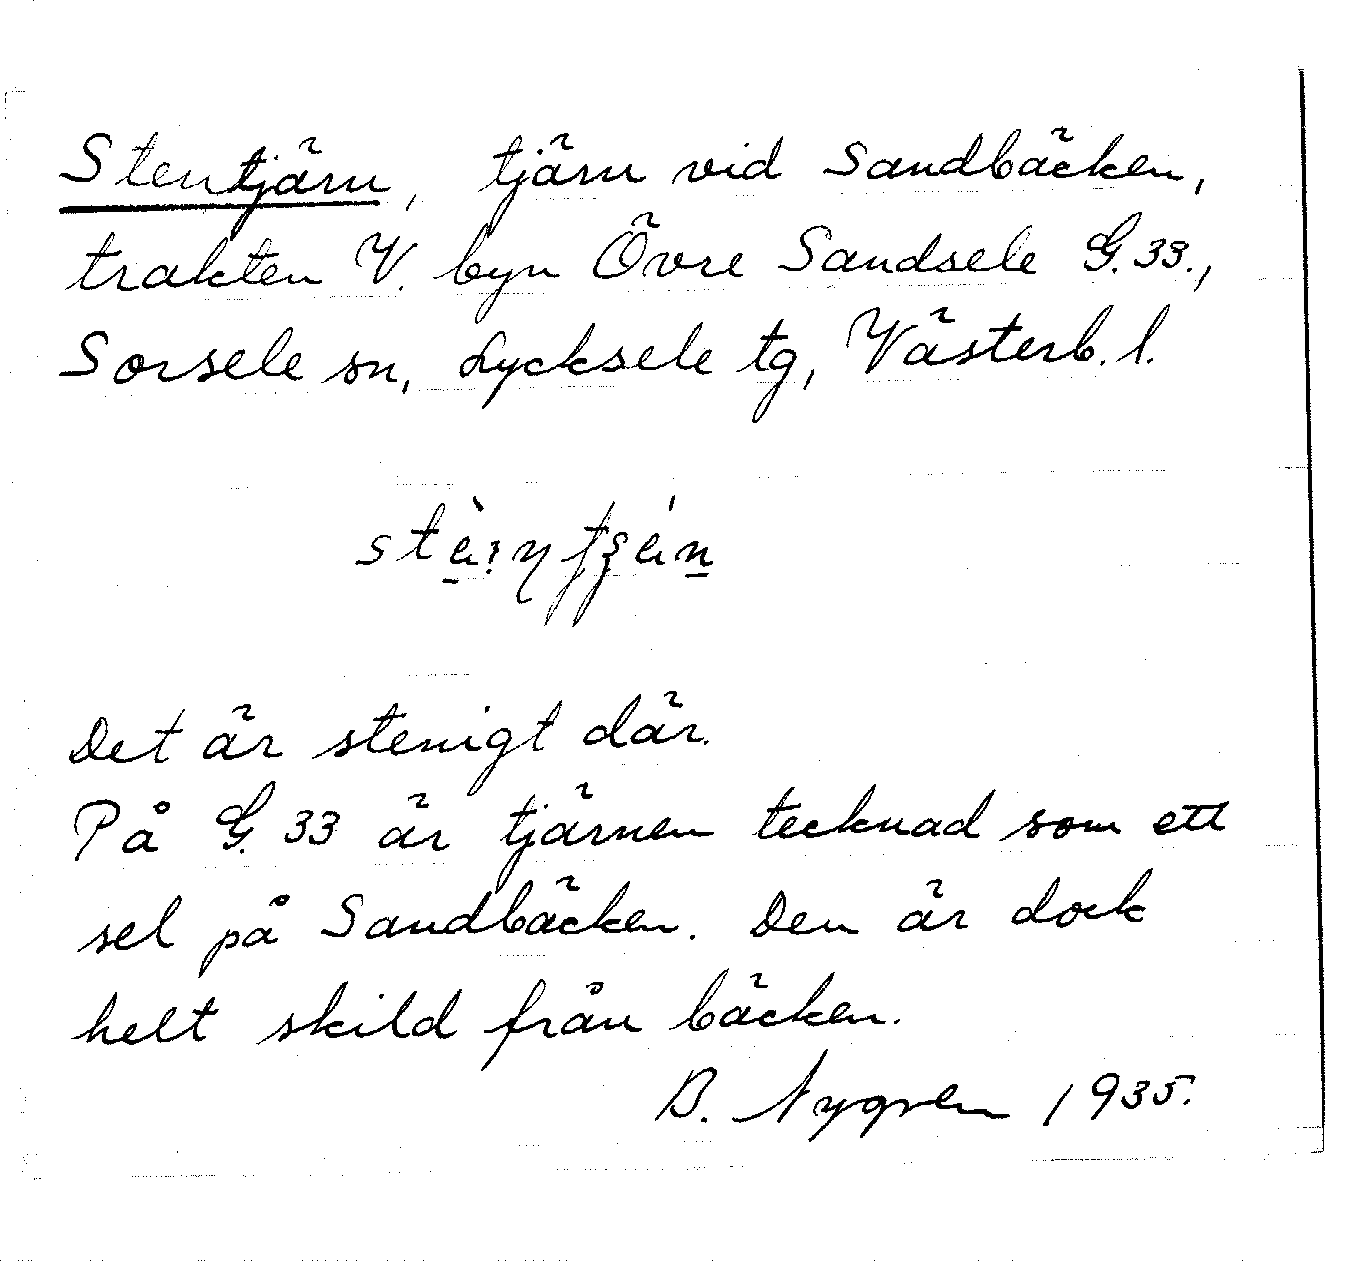 Stentjärn, tjärn vid Sandbäcken,
trakten V. byn Övre Sandsele G. 33.,
Sorsele sn, Lycksele tg, Västerb. l.
Det är stenigt där.
På G. 33 är tjärnen tecknad som ett
sel på Sandbäcken. Den är dock
helt skild från bäcken.
B. Nygren 1935.